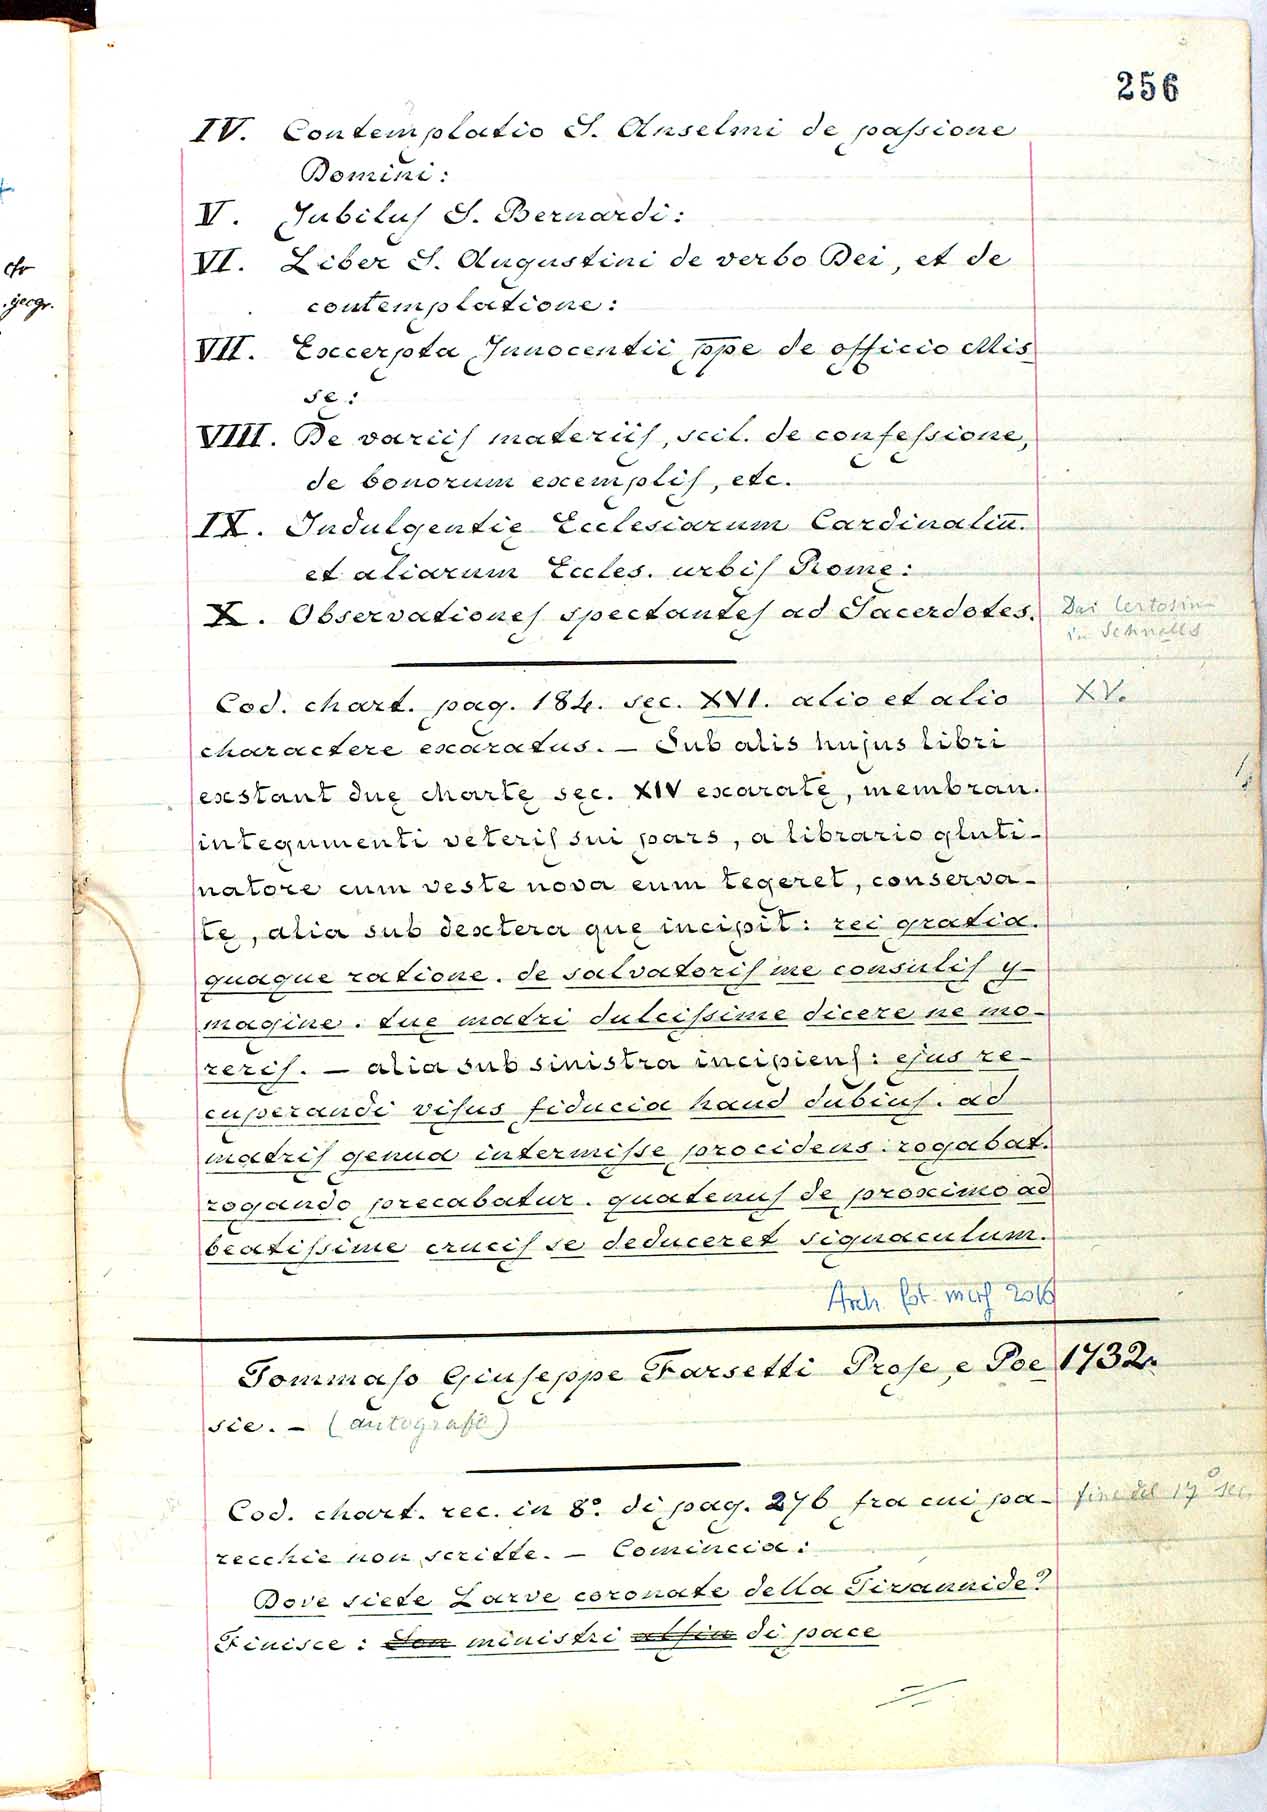 256
IV. Contemplatio S. Anselmi de paſsione
Domini:
V. Jubiluſ S. Bernardi:
VI. Liber S. Augustini de verbo Dei, et de
contemplatione:
VII. Excerpta Innocentii p̅p̅e de officio Mis
sę:
VIII. De variiſ materiiſ, scil. de confeſsione,
de bonorum exempliſ, etc.
IX. Indulgentię Ecclesiarum Cardinaliu̅.
et aliarum Eccles. urbiſ Romę:
X. Observationeſ spectanteſ ad Sacerdotes.
Dai Certosini
in Schnalls
Cod. chart. pag. 184. sec. XVI. alio et alio
XV.
charactere exaratus. — Sub alis hujus libri
exstant duę chartę sęc. XIV exaratę, membran.
integumenti veteriſ sui pars, a librario gluti-
natore cum veste nova eum tegeret, conserva-
tę, alia sub dextera quę incipit: rei gratia.
quaque ratione. de salvatoriſ me consuliſ y-
magine. tuę matri dulciſsime dicere ne mo-
reriſ. — alia sub sinistra incipienſ: ejus re-
cuperandi viſus fiducia haud dubiuſ. ad
matriſ genua intermiſse procidens. rogabat.
rogando precabatur. quatenuſ de proximo ad
beatiſsime cruciſ se deduceret signaculum.
Arch. fot. 2016
Tommaſo Giuſeppe Farsetti Proſe, e Poe
1732.
sie. — (autografo)
Cod. chart. rec. in 8.° di pag. 276 fra cui pa-
fine del 17° sec.
recchie non scritte. — Comincia:
Dove siete Larve coronate della Tirannide?
Finisce: Son ministri alfin di pace